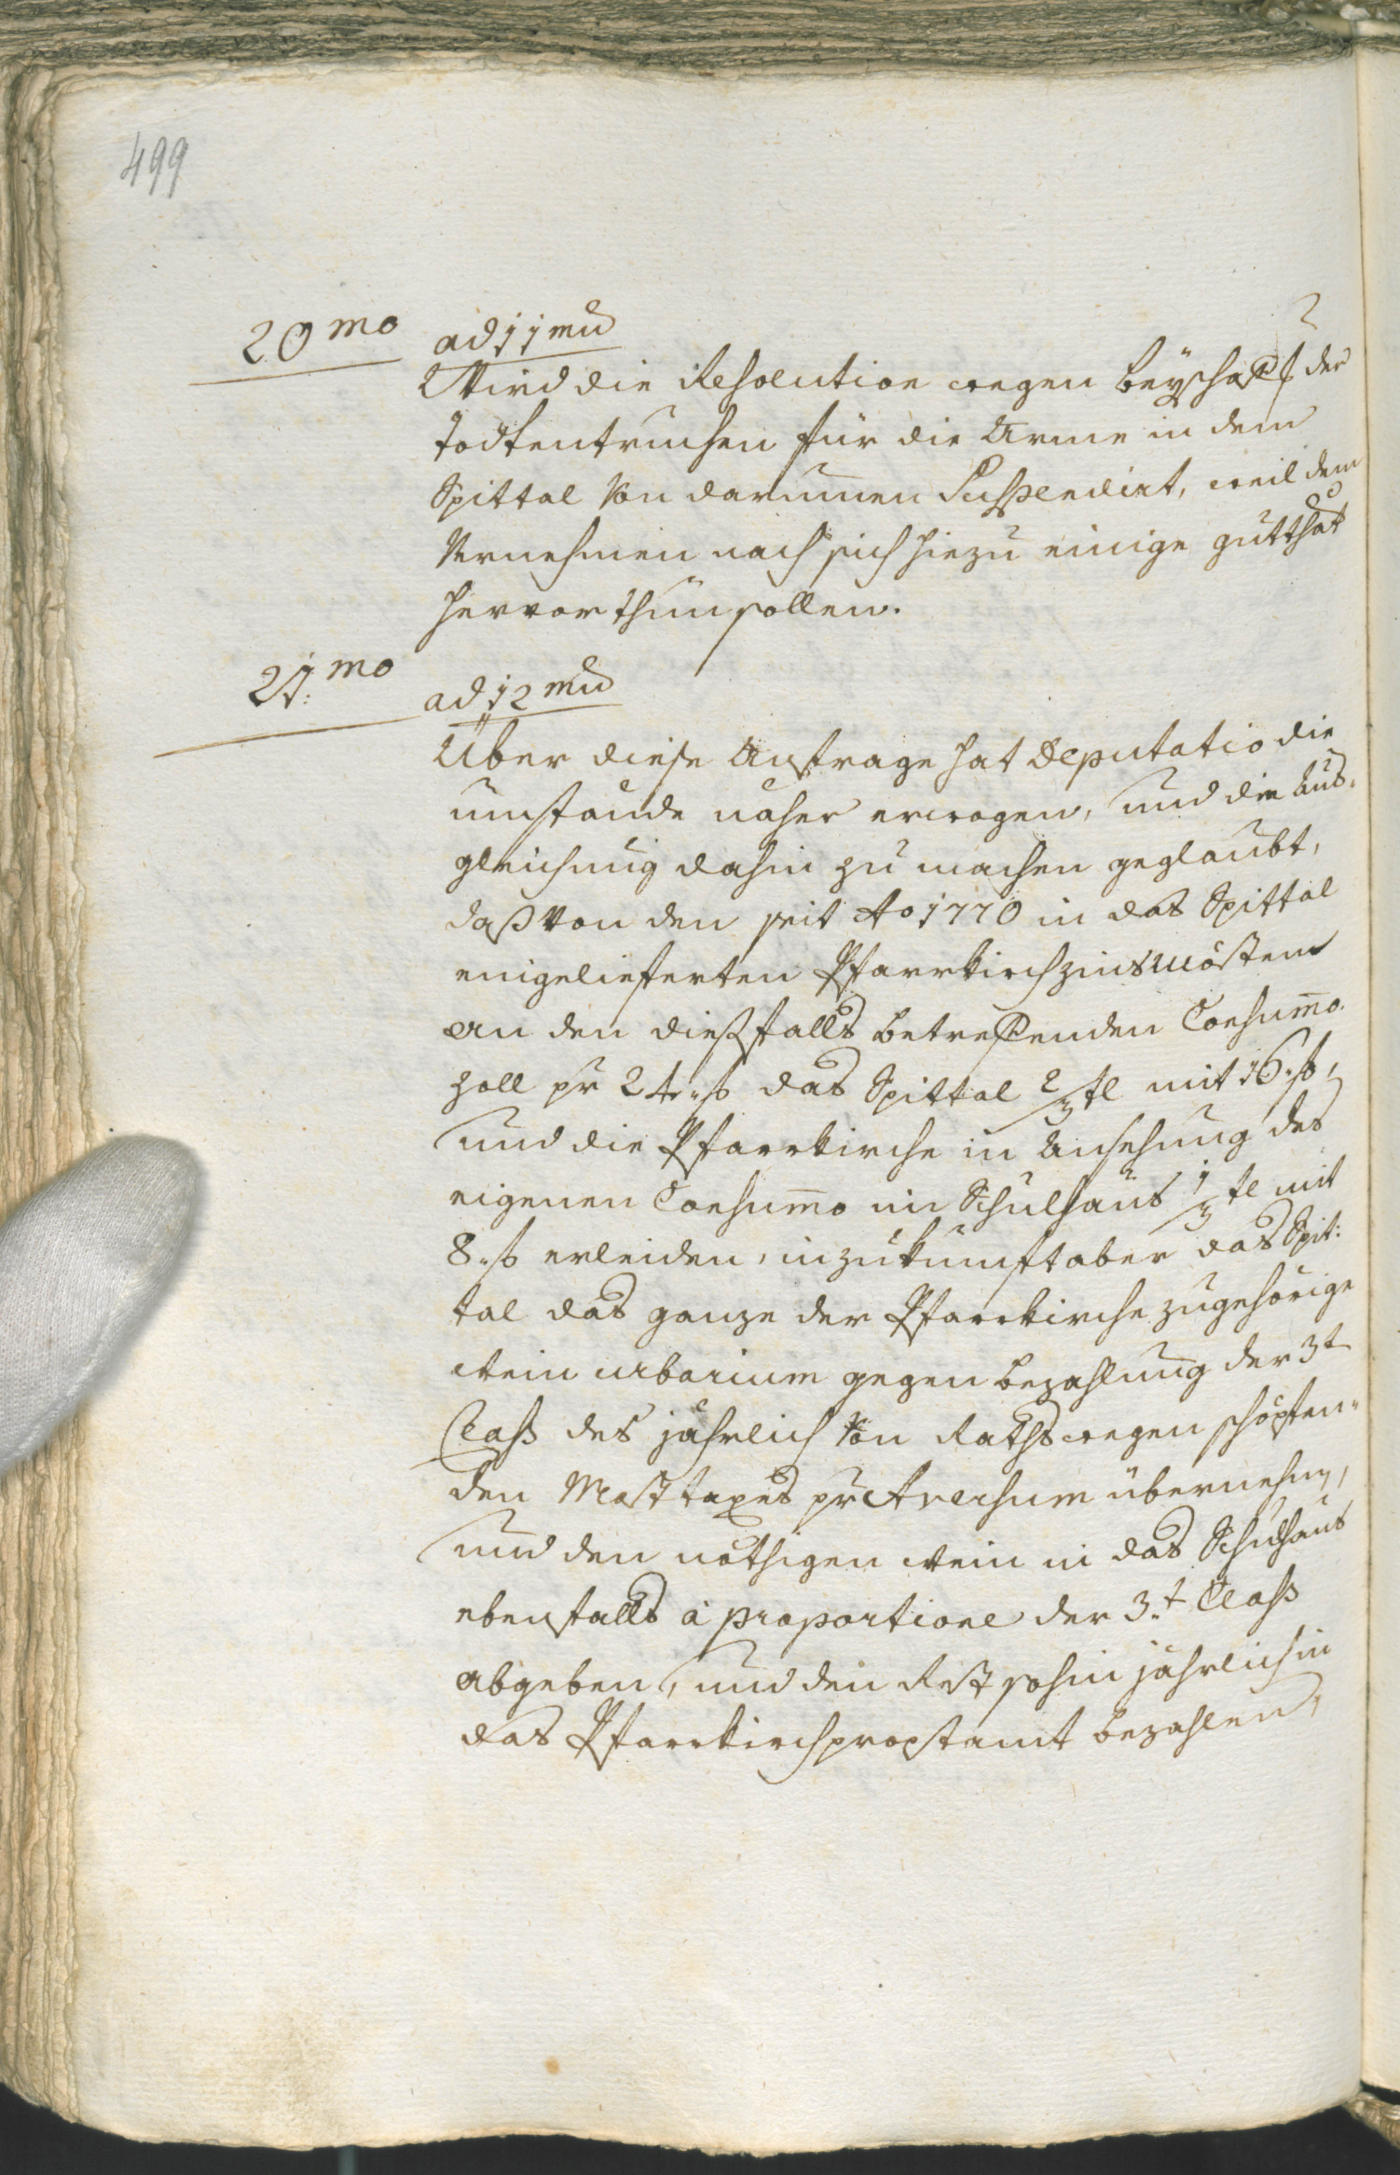 499
20mo
ad 11mu
Wird die Resolution wegen beyschaff der
Todtentruchen für die Arme in dem
Spittal von darummen Suspendirt, weil dem
Vernehmen nach sich hiezu einige gutthät
hervor thun sollen.
21.mo
ad 12mu
Über diese Anfrage hat Deputatio die
umstände näher erwogen, und die Aus-
gleichung dahin zu machen geglaubt,
daß von den seit Ao 1770 in das Spittal
eingelieferten Pfarrkirchzinsmösten
an den dießfalls betreffenden Consumo
zoll pr 24 f das Spittal 2/3tl mit 16 f,
und die Pfarrkirche in Ansehung des
eigenen Consumo im Schulhaus 1/3tl mit
8 f erleiden, inzukunft aber das Spit:
tal das ganze der Pfarrkirche zugehörige
Wein urbarium gegen bezahlung der 3t
Class des jährlich von Rathswegen schöpfen-
den Mosttaxes pr Aversum übernehmen,
und den nöthigen Wein in das Schulhaus
ebenfalls à proportione der 3.t Class
abgeben, und den Rest sohin jährlich in
das Pfarrkirchpropstamt bezahlen,